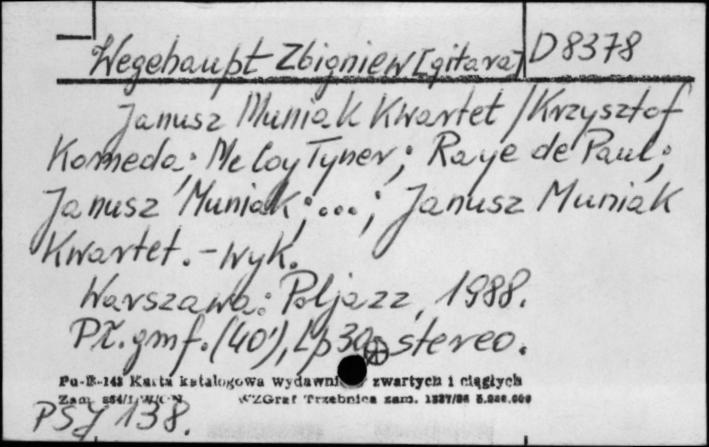 Wegehaupt Zbigniew [gitara] D 8378
Janusz Muniak Kwartet / Krzysztof
Komeda; Mc Coy Tyner; Raye de Paul;
Janusz Muniak; ...; Janusz Muniak
Kwartet. - wyk.
Warszawa: Poljazz, 1988.
Pł. gmf. (40'), Lp 30, stereo.
Pu-B-143 Karta katalogowa wydawnictw zwartych i ciągłych
Zam. WZGraf Trzebnica zam.
PSJ 138.